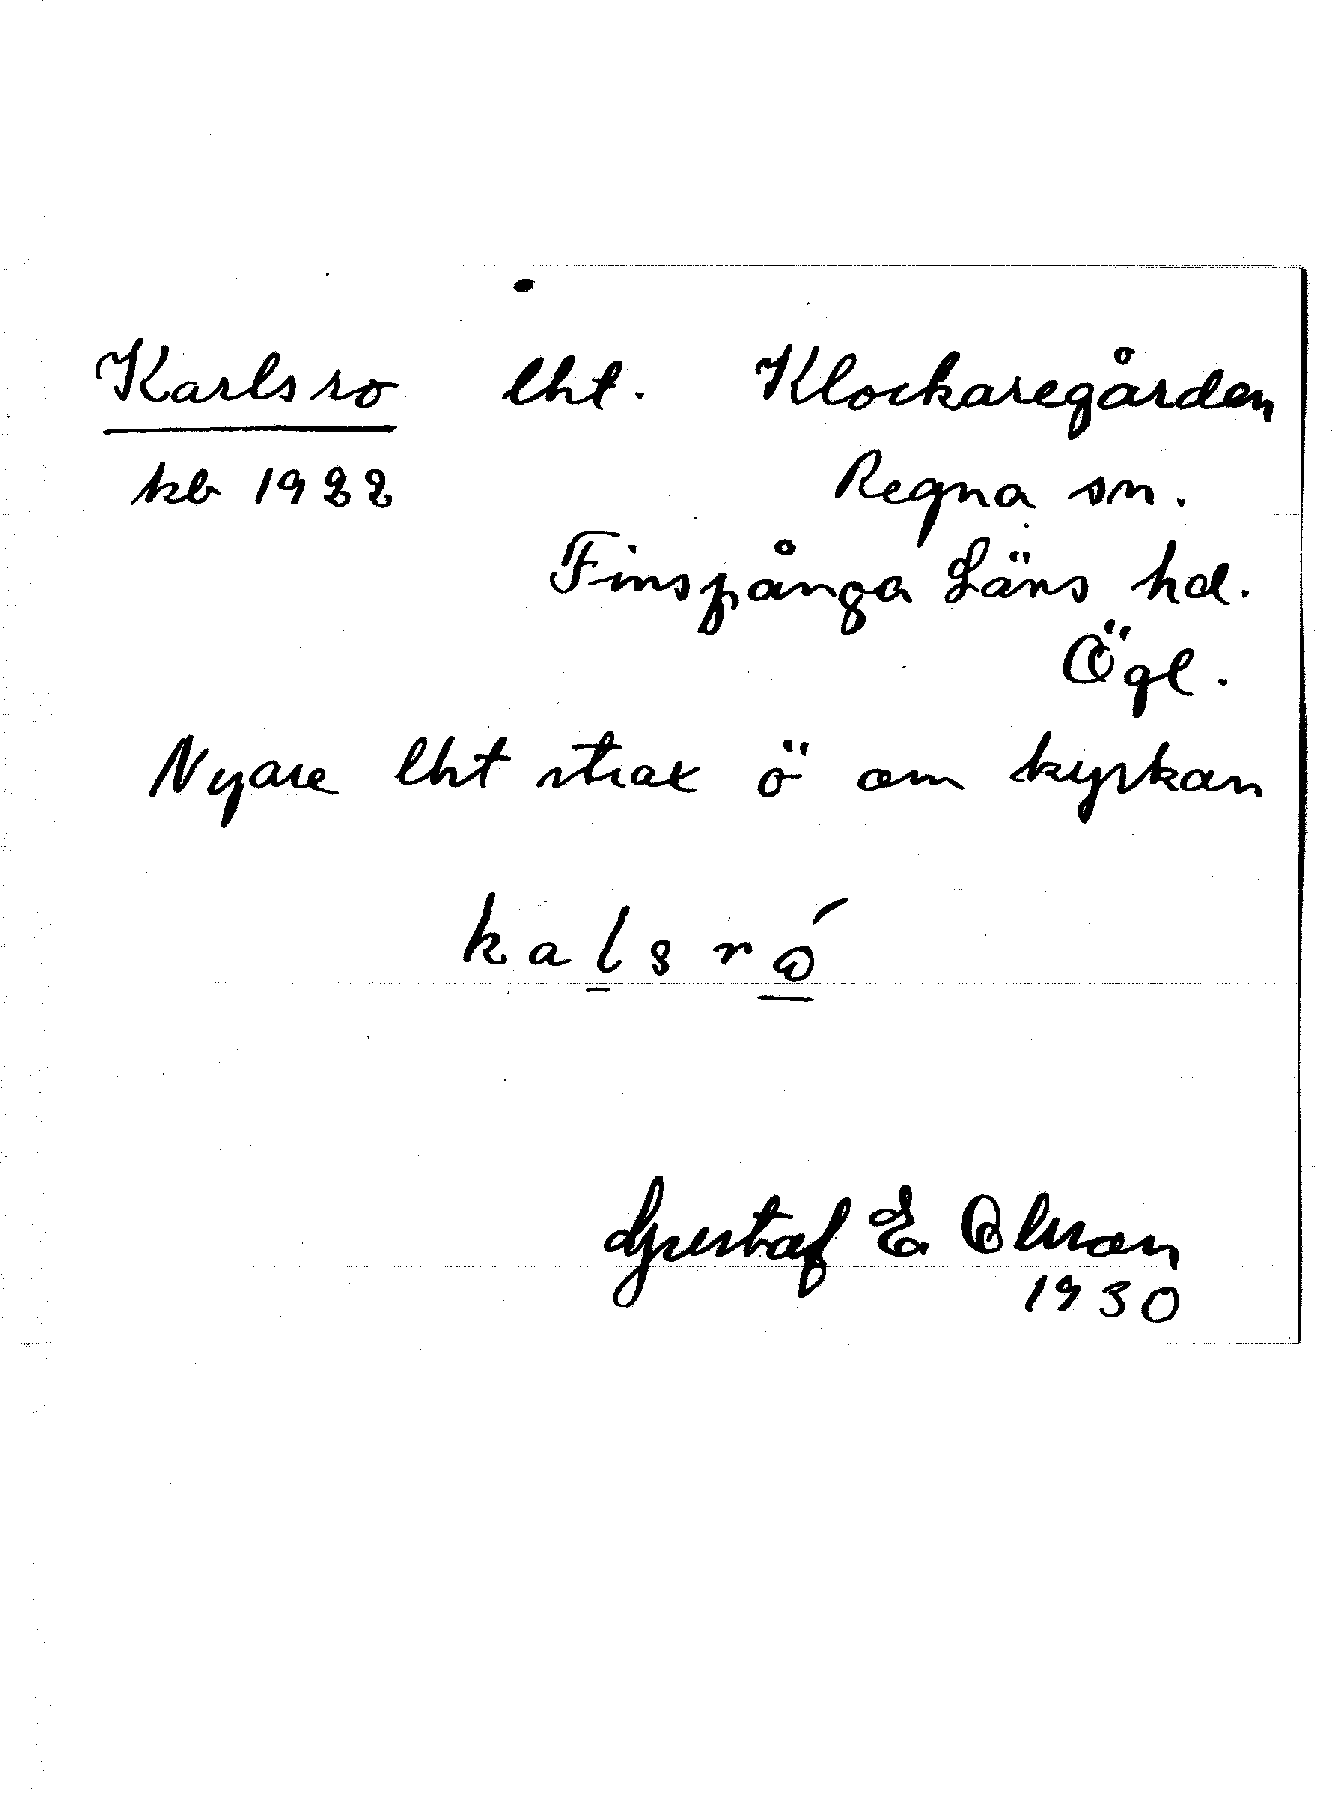 Karlsro lht. Klockaregården
kb 1922 Regna sn.
Finspånga Läns hd.
Ögl.
Nyare lht strax ö om kyrkan
kalsró
Gustaf E Olsson
1930